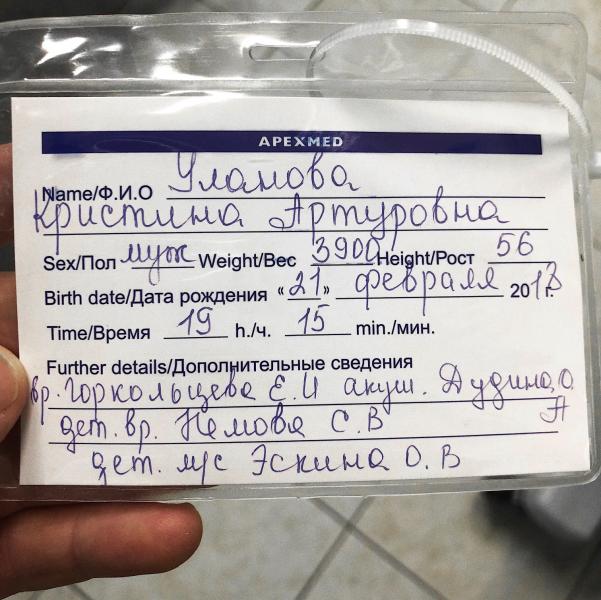 APEXMED
Name/Ф.И.О Уланова
Кристина Артуровна
Sex/Пол муж Weight/Вес 3900 Height/Рост 56
Birth date/Дата рождения «21» февраля 2013г.
Time/Время 19 h./ч. 15 min./мин.
Further details/Дополнительные сведения
вр. Горкольцева Е.И акуш. Дудина О
А
дет. вр. Немова С.В
дет. м/с Эскина О.В